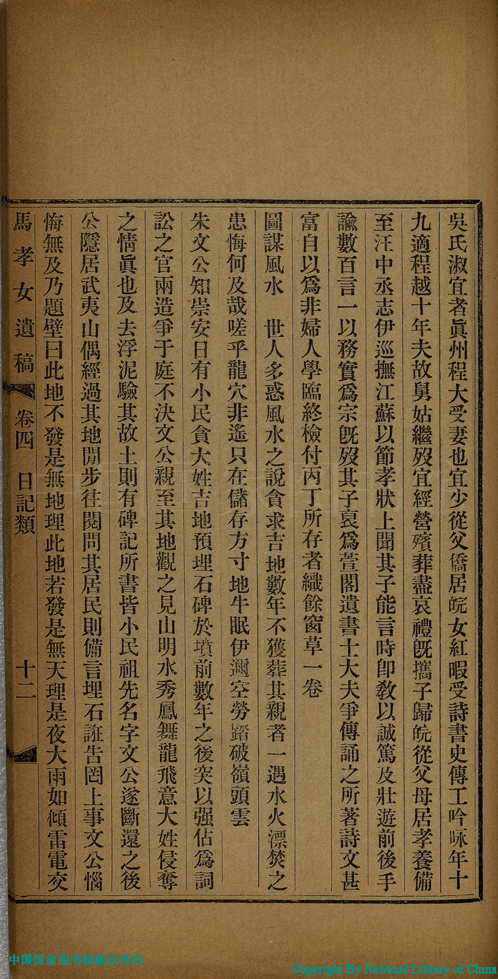 吳氏淑宜者眞州程大受妻也宜少從父僑居皖女紅暇受詩書史傳工吟咏年十
九適程越十年夫故舅姑繼歿宜經營殯葬盡哀禮旣攜子歸皖從父母居孝養備
至汪中丞志伊巡撫江蘇以節孝狀上聞其子能言時卽敎以誠篤及壯遊前後手
諭數百言一以務實爲宗旣歿其子裒爲萱閣遺書士大夫爭傳誦之所著詩文甚
富自以爲非婦人學臨終檢付丙丁所存者織餘窗草一卷
圖謀風水 世人多惑風水之說貪求吉地數年不獲葬其親者一遇水火漂焚之
患悔何及哉嗟乎龍穴非遙只在儲存方寸地牛眠伊邇空勞踏破嶺頭雲
朱文公知崇安日有小民貪大姓吉地預埋石碑於墳前數年之後突以强佔爲詞
訟之官兩造爭于庭不決文公親至其地觀之見山明水秀鳳舞龍飛意大姓侵奪
之情眞也及去浮泥驗其故土則有碑記所書皆小民祖先名字文公遂斷還之後
公隱居武夷山偶經過其地閒步往閱問其居民則備言埋石誑吿罔上事文公惱
悔無及乃題壁曰此地不發是無地理此地若發是無天理是夜大雨如傾雷電交
馬孝女遺稿 卷四 日記類 十二
中国国家图书馆版权所有
Copyright By National Library of China